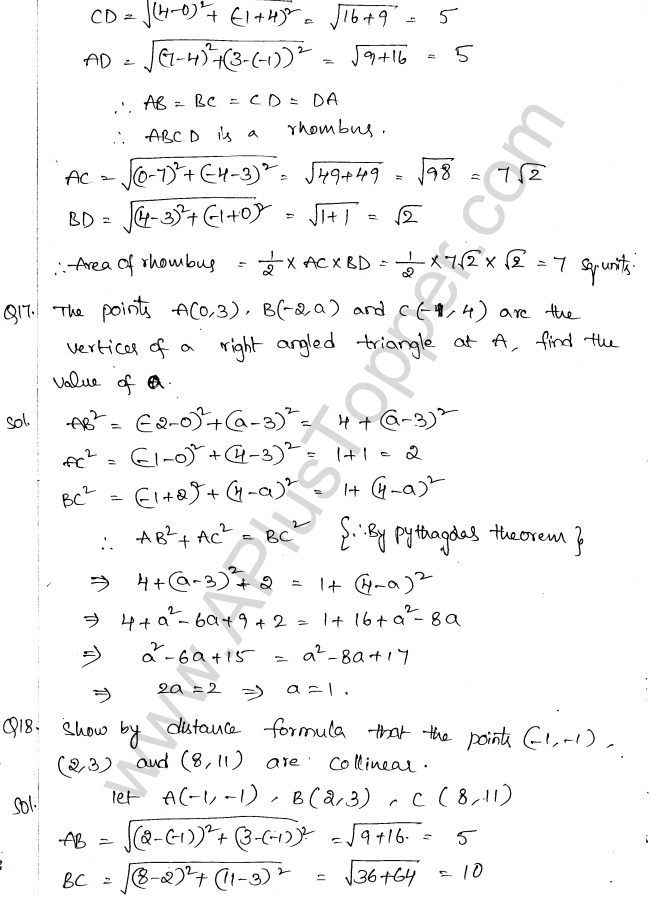 CD = √(4-0)² + (-1+4)² = √16+9 = 5
AD = √(7-4)²+(3-(-1))² = √9+16 = 5
∴ AB = BC = CD = DA
∴ ABCD is a rhombus.
AC = √(0-7)² + (-4-3)² = √49+49 = √98 = 7√2
BD = √(4-3)²+(-1+0)² = √1+1 = √2
∴ Area of rhombus = 1/2 × AC × BD = 1/2 × 7√2 × √2 = 7 sq. units.
Q17. The points A(0,3), B(-2,a) and C(-1,4) are the
vertices of a right angled triangle at A, find the
value of a.
Sol. AB² = (-2-0)²+(a-3)² = 4+(a-3)²
AC² = (-1-0)²+(4-3)² = 1+1 = 2
BC² = (-1+2)²+(4-a)² = 1+(4-a)²
∴ AB²+AC² = BC² {∵By pythagdas theorem}
⇒ 4+(a-3)²+2 = 1+(4-a)²
⇒ 4+a²-6a+9+2 = 1+16+a²-8a
⇒ a²-6a+15 = a²-8a+17
⇒ 2a=2 ⇒ a=1.
Q18. Show by distance formula that the points (-1,-1),
(2,3) and (8,11) are collinear.
Sol. let A(-1,-1), B(2,3), C(8,11)
AB = √(2-(-1))²+(3-(-1))² = √9+16 = 5
BC = √(8-2)²+(11-3)² = √36+64 = 10
www.APlusTopper.com